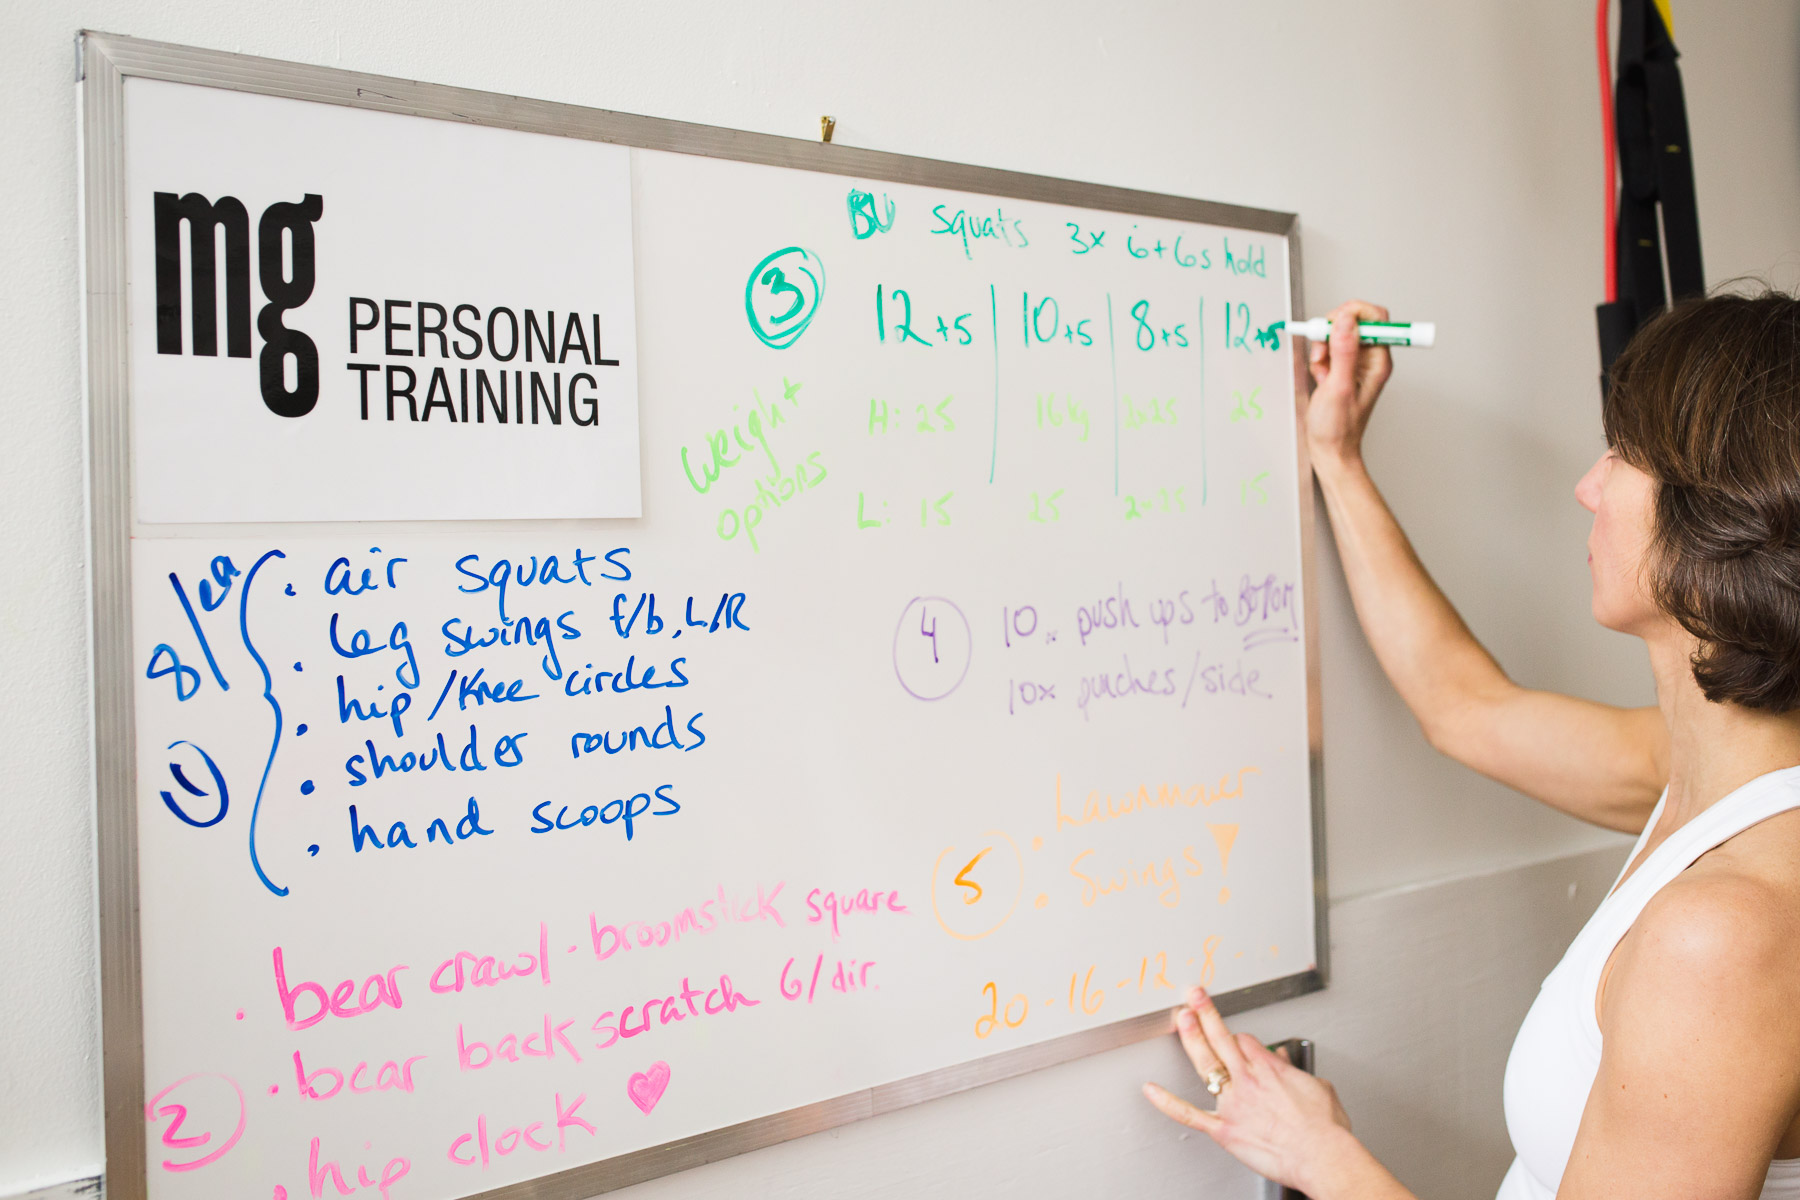 mg PERSONAL
TRAINING
8/ea
①
· air squats
· leg swings f/b, L/R
· hip/knee circles
· shoulder rounds
· hand scoops
②
· bear crawl · broomstick square
· bear back scratch 6/dir.
· hip clock ♥
③
BU squats 3x 6+6s hold
12+5 | 10+5 | 8+5 | 12+5
weight options
H: 25 16kg 2x25 25
L: 15 25 2x25 15
④
10x push ups to BOTTOM
10x punches/side
⑤
· Lawnmower
· Swings!
20-16-12-8-...